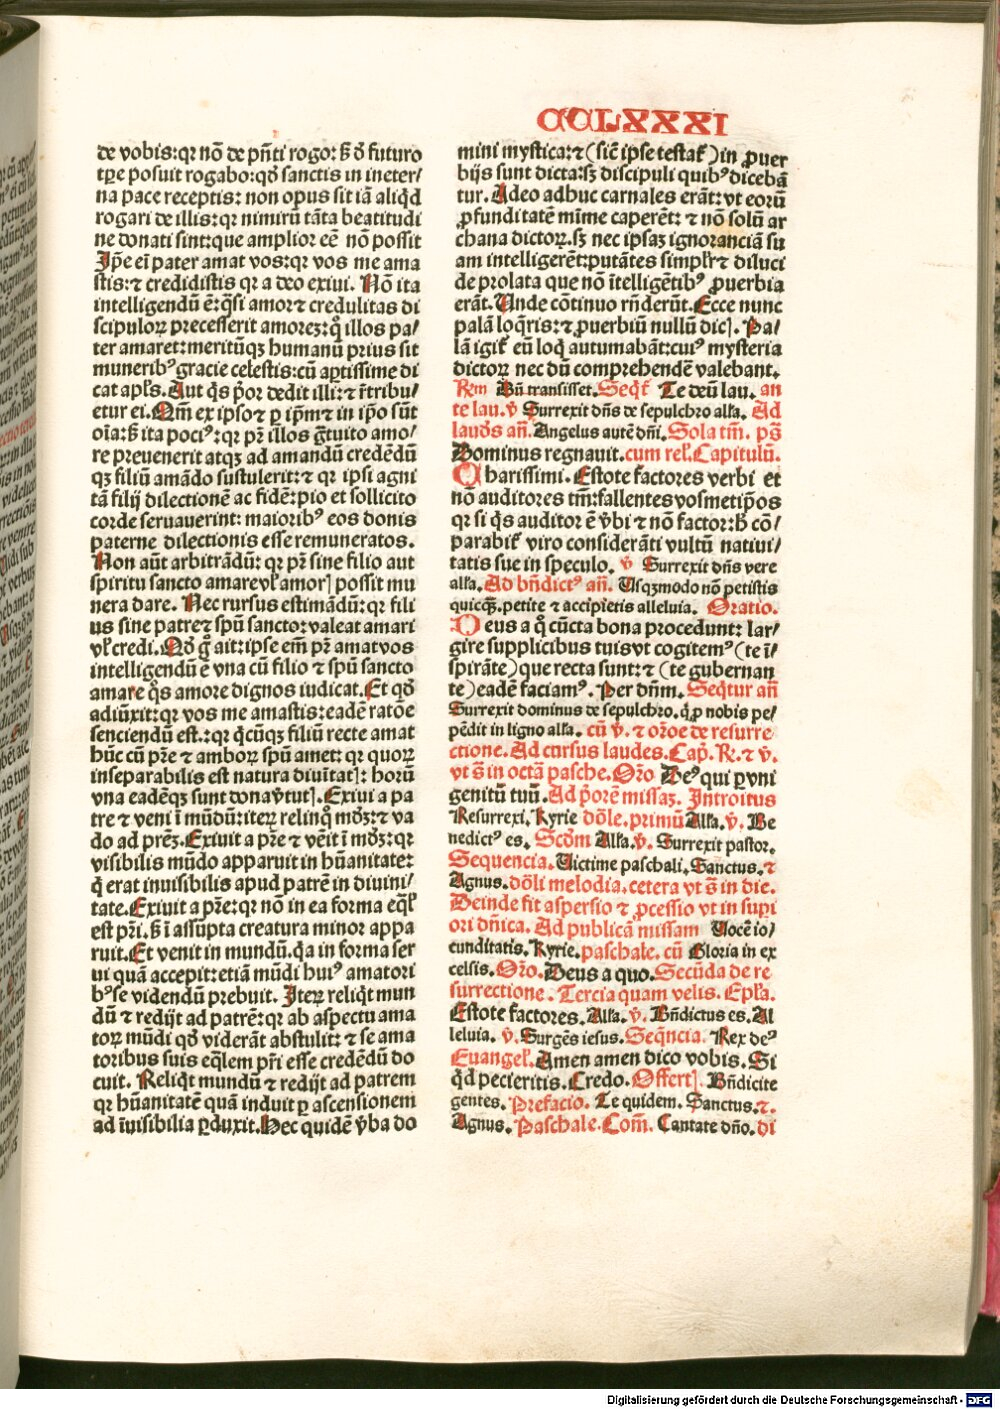 CCLXXXI
de vobis:qꝛ nō de pñti rogo:ß ð futuro
tꝑe posuit rogabo:qð sanctis in ineter/
na pace receptis: non opus sit iā aliqd
rogari de illis:qꝛ nimirū tāta beatitudi
ne donati sint:que amplior eē nō possit
Ip̄e eī pater amat vos:qꝛ vos me ama
stis:⁊ credidistis qꝛ a deo exiui. Nō ita
intelligendū ē:q̄si amor⁊ credulitas di
scipuloꝝ precesserit amorez:q̇ illos pa/
ter amaret:meritūqꝫ humanū prius sit
muneribꝰ gracie celestis:cū aptissime di
cat apl̄s. Aut q̇s p̓or dedit illi:⁊ r̄tribu/
etur ei. Qm̄ ex ipso⁊ ꝑ ip̄m⁊ in ip̄o sūt
oīa:ß ita pociꝰ:qꝛ pr̄ illos g̅tuito amo/
re preuenerit atqꝫ ad amandū credēdū
qꝫ filiū amādo sustulerit:⁊ qꝛ ipsi agni
tā filij dilectionē ac fidē:pio et sollicito
corde seruauerint: maioribꝰ eos donis
paterne dilectionis esse remuneratos.
Non aūt arbitrādū: qꝛ pr̄ sine filio aut
spiritu sancto amarevl̓amorꝭ possit mu
nera dare. Nec rursus estimādū:qꝛ fili
us sine patre⁊ spū sancto: valeat amari
vl̓credi. Qð g̊ ait:ipse em̄ pr̄ amatvos
intelligendū ē vna cū filio ⁊ spū sancto
amare q̊s amore dignos iudicat. Et qð
adiūxit:qꝛ vos me amastis:eadē ratōe
senciendū est.:qꝛ q̇cūqꝫ filiū recte amat
hūc cū pr̄e ⁊ amboꝝ spū amet: qꝛ quoꝝ
inseparabilis est natura diuītatꝭ: horū
vna eadēqꝫ sunt dona v̓tutꝭ. Exiui a pa
tre ⁊ veni ī mūdū:iteꝝ relinq̊ mdꝫ:⁊ va
do ad prēz. Exiuit a pr̄e ⁊ vēit ī mdꝫ:qꝛ
visibilis mūdo apparuit in hūanitate:
q̇ erat inuisibilis apud patrē in diuini/
tate. Exiuit a pr̄e:qꝛ nō in ea forma eq̄l̓
est pr̄i. ß ī assūpta creatura minor appa
ruit. Et venit in mundū. q̇a in forma ser
ui quā accepit:etiā mūdi huiꝰ amatori
bꝰse videndū prebuit. Iteꝝ reliq̇t mun
dū ⁊ redijt ad patrē:qꝛ ab aspectu ama
toꝝ mūdi qð viderāt abstulit: ⁊ se ama
toribus suis eq̄lem pr̄i esse credēdū do
cuit. Reliq̇t mundū ⁊ redijt ad patrem
qꝛ hūanitatē quā induit ꝑ ascensionem
ad īuisibilia ꝑduxit. Hec quidē v̓ba do
mini mystica:⁊ (sic̄ ipse testat᷑) in ꝓuer
bijs sunt dicta:sꝫ discipuli quibꝰ dicebā
tur. Adeo adhuc carnales erāt: vt eorū
ꝓfunditatē mīme caperēt: ⁊ nō solū ar
chana dictoꝝ. sꝫ nec ipsaꝫ ignoranciā su
am intelligerēt:putātes simpl̓r⁊ diluci
de prolata que nō ītelligētibꝰ ꝓuerbia
erāt. Unde cōtinuo rn̄derūt. Ecce nunc
palā loq̄ris:⁊ ꝓuerbiū nullū dicꝭ. Pa/
lā igit᷑ eū loq̇ autumabāt:cuiꝰ mysteria
dictoꝝ nec dū comprehendē valebant.
Rm Dū transisset. Seqt᷑ Te deū lau. an
te lau. v̓ Surrexit dn̄s de sepulchro all̓a. Ad
laudꝭ añ. Angelus autē dn̄i. Sola tm̄. ps̄
Dominus regnauit. cum rel̓. Capitulū.
Charissimi. Estote factores verbi et
nō auditores tm̄:fallentes vosmetip̄os
qꝛ si q̇s auditor ē v̓bi ⁊ nō factor:hic cō/
parabit᷑ viro considerāti vultū natiui/
tatis sue in speculo. v̓ Surrexit dn̄s vere
all̓a. Ad bn̄dictꝰ añ. Usqꝫmodo nō petistis
quicq̄ꝫ. petite ⁊ accipietis alleluia. Oratio.
Deus a q̊ cūcta bona procedunt: lar/
gire supplicibus tuisvt cogitemꝰ (te ī/
spirāte) que recta sunt: ⁊ (te gubernan
te) eadē faciamꝰ. Per dn̄m. Seqtur añ
Surrexit dominus de sepulchro. q̇ ꝓ nobis pe/
pēdit in ligno all̓a. cū v̓. ⁊ or̄oe de resurre
ctione. Ad cursus laudes. Cap̄. R. ⁊ v̓.
vt s̄ in octā pasche. Or̄o Deꝰ qui ꝑ vni
genitū tuū. Ad p̓orē missaꝫ. Introitus
Resurrexi. Kyrie dōle. primū All̓a. v̓. Be
nedictꝰ es. Scḋm All̓a. v̓. Surrexit pastor.
Sequencia. Victime paschali. Sanctus. ⁊
Agnus. dōli melodia. cetera vt s̄ in die.
Deinde fit aspersio ⁊ ꝓcessio vt in supi
ori dn̄ica. Ad publicā missam Vocē io/
cunditatis. Kyrie. paschale. cū Gloria in ex
celsis. Or̄o. Deus a quo. Secūda de re
surrectione. Tercia quam velis. Epl̓a.
Estote factores. All̓a. v̓. Bn̄dictus es. Al
leluia. v̓. Surgēs iesus. Seqn̄cia. Rex deꝰ
Euangel̓. Amen amen dico vobis. Si
qd pecieritis. Credo. Offertꝭ. Bn̄dicite
gentes. Prefacio. Te quidem. Sanctus. ⁊.
Agnus. Paschale. Com̄. Cantate dn̄o. di
Digitalisierung gefördert durch die Deutsche Forschungsgemeinschaft - DFG